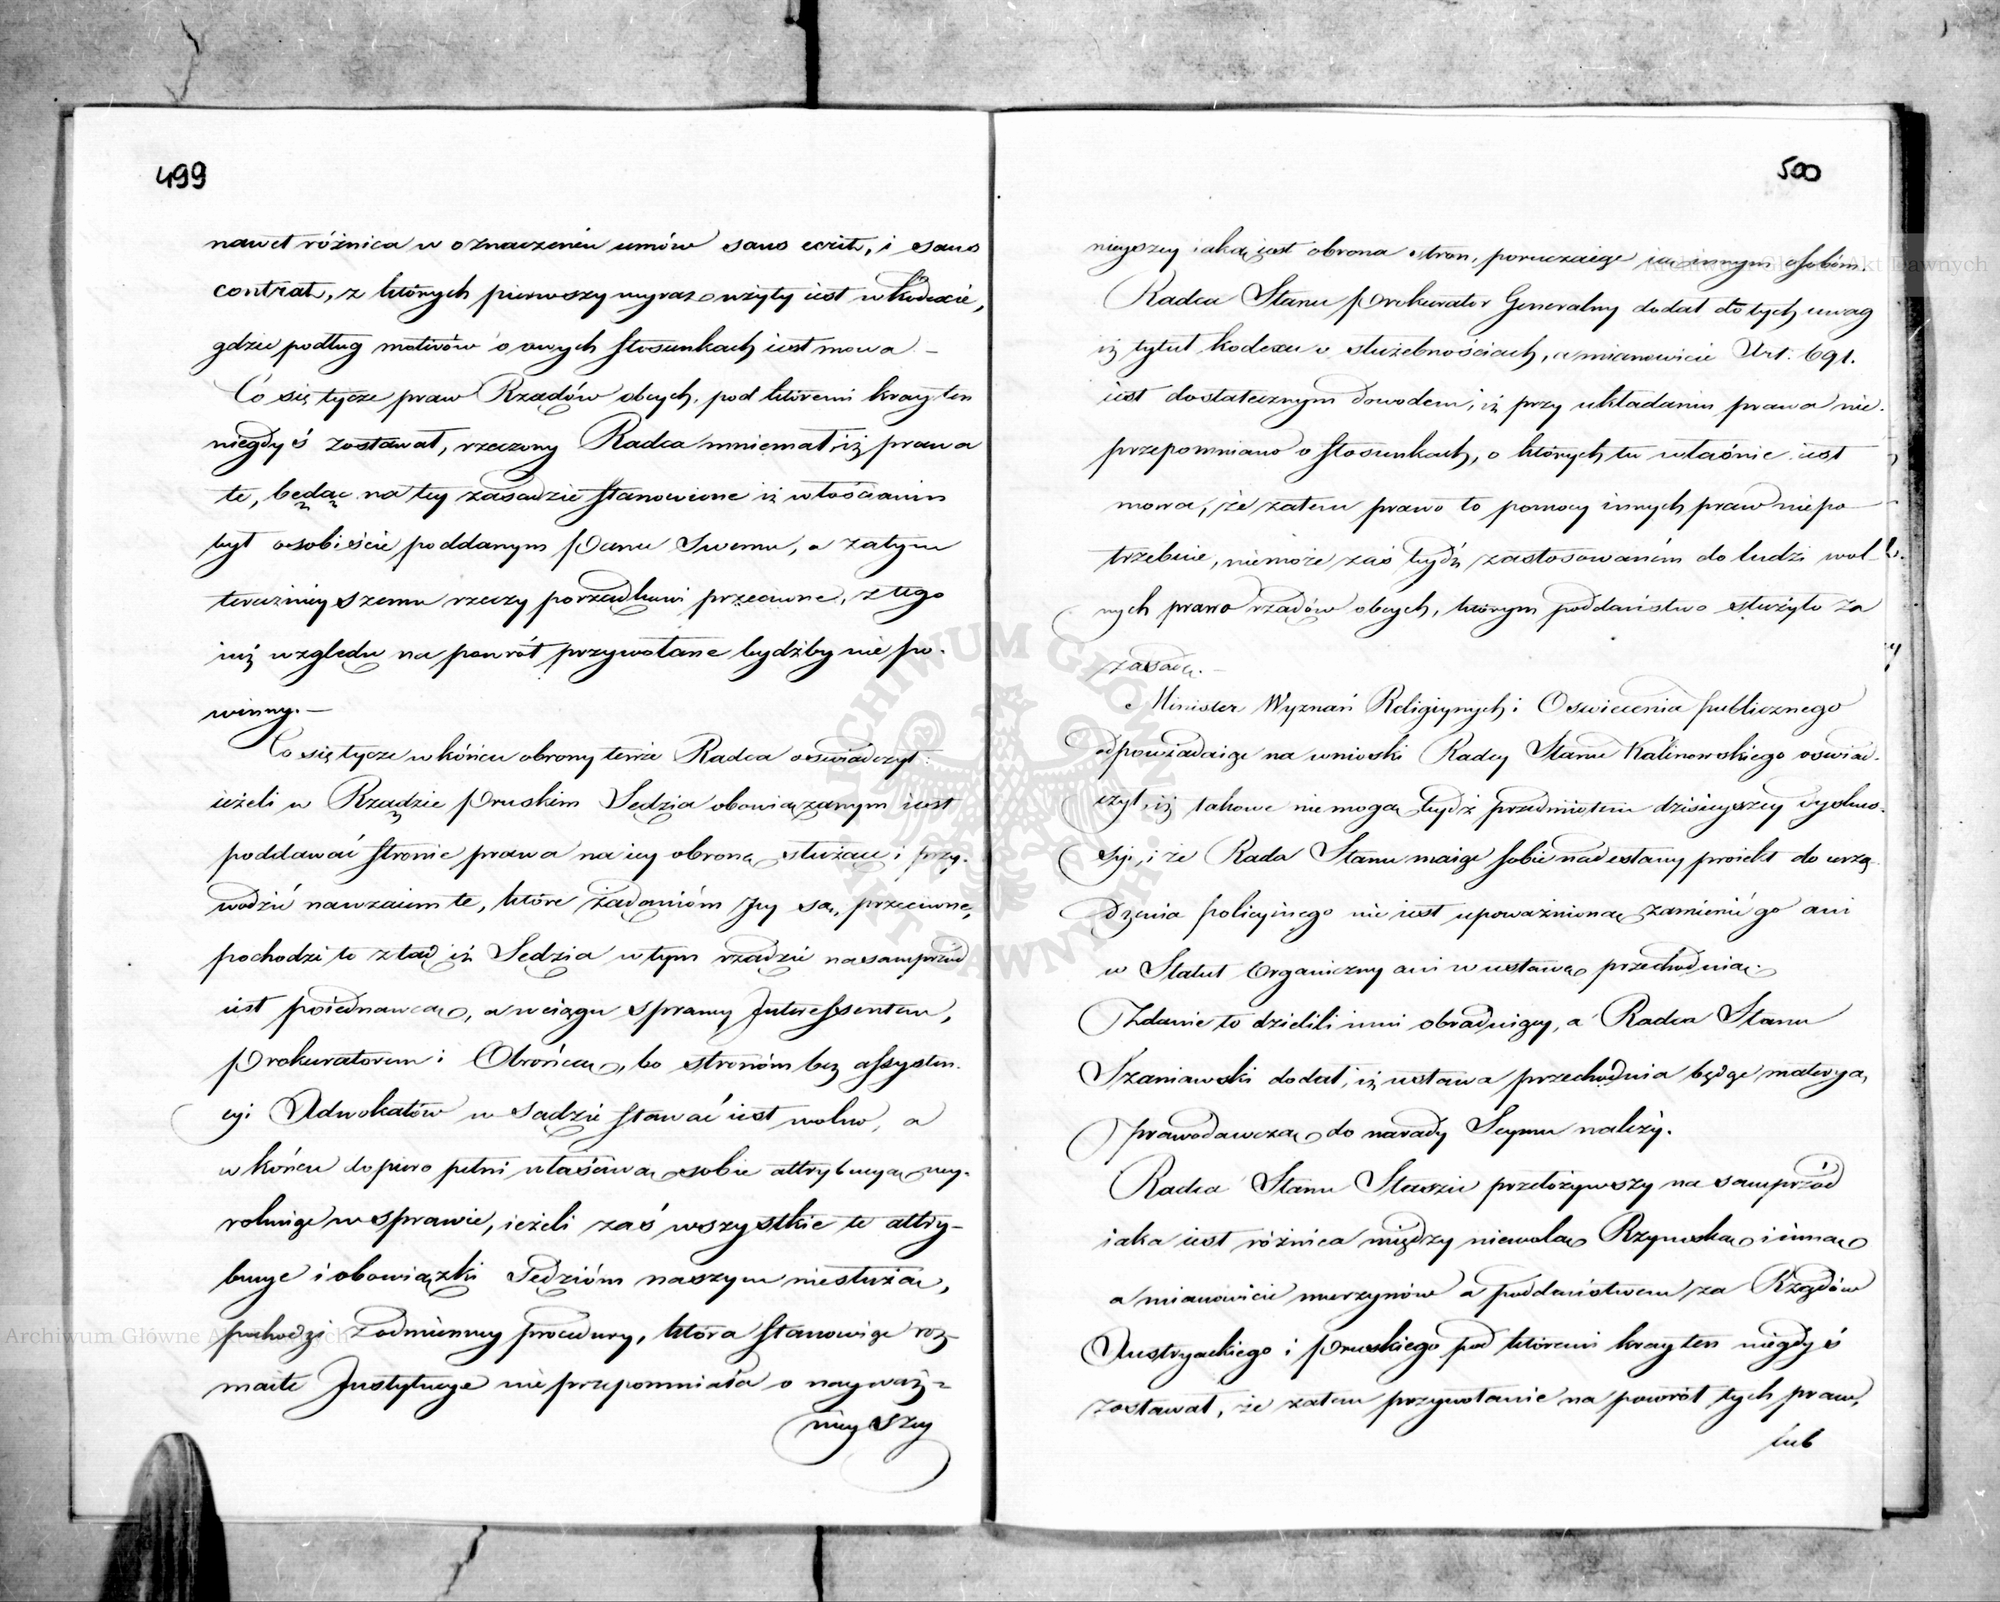 499
nawet różnica w oznaczeniu umów sans ecrit, i sans
contrat, z których pierwszy wyraz użyty iest w kodexie,
gdzie podług motivów o owych stosunkach iest mowa –
Co się tycze praw Rządów obcych, pod któremi kray ten
niegdyś zostawał, rzeczony Radca mniemał, iż prawa
te, będąc na tey zasadzie stanowione iż włościanin
był osobiście poddanym Panu Swemu, a zatym
teraźnieyszemu rzeczy porządkowi przeciwne, z tego
iuż względu na powrót przywołane bydźby nie po-
winny. –
Co się tycze w końcu obrony tenże Radca oświadczył:
ieżeli w Rządzie Pruskim Sędzia obowiązanym iest
poddawać stronie prawa na iey obronę służące i przy-
wodzić nawzaiem te, które żądaniom Jey są, przeciwne,
pochodzi to ztąd iż Sędzia w tym rządzie nasamprzód
iest poiednawcą, a w ciągu sprawy Interessentem,
Prokuratorem i Obrońcą, bo stronóm bez assysten-
cyi Adwokatów w sądzie stawać iest wolno, a
w końcu dopiero pełni właściwą sobie attrybucyą wy-
rokuiąc w sprawie, ieżeli zaś wszystkie te attry-
bucye i obowiązki Sędzióm naszym niesłużą,
pochodzi z odmienney procedury, która stanowiąc roz-
maite Instytucye nie przepomniała o nayważ-
nieyszey
500
nieyszey iaką iest obrona stron, poruczaiąc ią innym osobóm.
Radca Stanu Prokurator Generalny dodał do tych uwag
iż tytuł kodexu o służebnościach, a mianowicie Art: 691.
iest dostatecznym dowodem, iż przy układaniu prawa nie-
przepomniano o stosunkach, o których tu właśnie iest
mowa, że zatem prawo to pomocy innych praw niepo-
trzebuie, niemoże zaś bydź zastosowaném do ludzi wol-
nych prawo rządów obcych, którym poddaństwo służyło za
zasadę. –
Minister Wyznań Religiynych i Oświecenia publicznego
odpowiadaiąc na wnioski Radcy Stanu Kalinowskiego oświad-
czył, iż takowe nie mogą bydź przedmiotem dzisieyszey dyskus-
syi, i że Rada Stanu maiąc sobie nadesłany proiekt do urzą-
dzenia policyinego nie iest upoważnioną zamienić go ani
w Statut Organiczny ani w ustawę przechodnią.
Zdanie to dzielili inni obraduiący, a Radca Stanu
Szaniawski dodał, iż ustawa przechodnia będąc materyą
prawodawczą do narady Seymu należy.
Radca Stanu Staszic przełożywszy na samprzód
iaka iest różnica między niewolą Rzymską i inną
a mianowicie murzynów a poddaństwem za Rządów
Austryackiego i Pruskiego pod któremi kray ten niegdyś
zostawał, że zatem przywołanie na powrót tych praw,
lub
Archiwum Główne Akt Dawnych
Archiwum Główne Akt Dawnych
ARCHIWUM GŁÓWNE AKT DAWNYCH